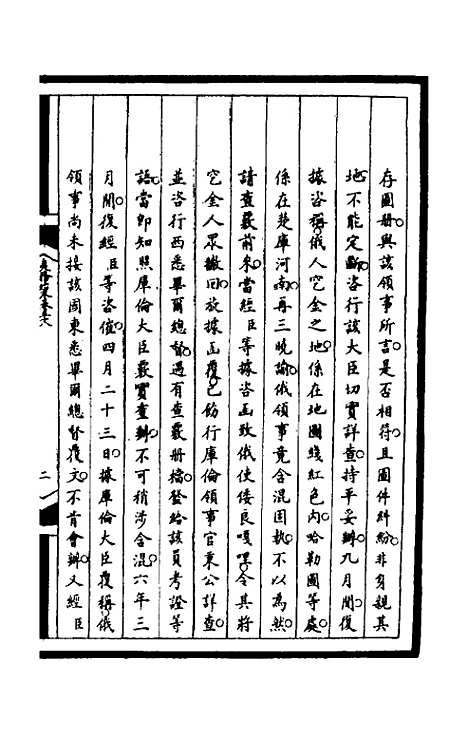 存圖册與該領事所言是否相符且圖件糾紛非身親其
地不能定斷咨行該大臣切實詳查持平妥辦九月間復
據咨稱俄人空金之地係在地圖綫紅色内哈勒圖等處
係在楚庫河南再三曉諭俄領事竟含混固執不以為然
請查覈前來當經臣等據咨函致俄使倭良嘎哩令其將
空金人眾撤回放據函覆已飭行庫倫領事官秉公詳查
並咨行西悉畢爾總督遇有查覈册檔發給該員考證等
語當即知照庫倫大臣覈實查辦不可稍涉含混六年三
月間復經臣等咨催四月二十三日據庫倫大臣覆稱俄
領事尚未接該國東悉畢爾總督覆文不肯會辦又經臣
二